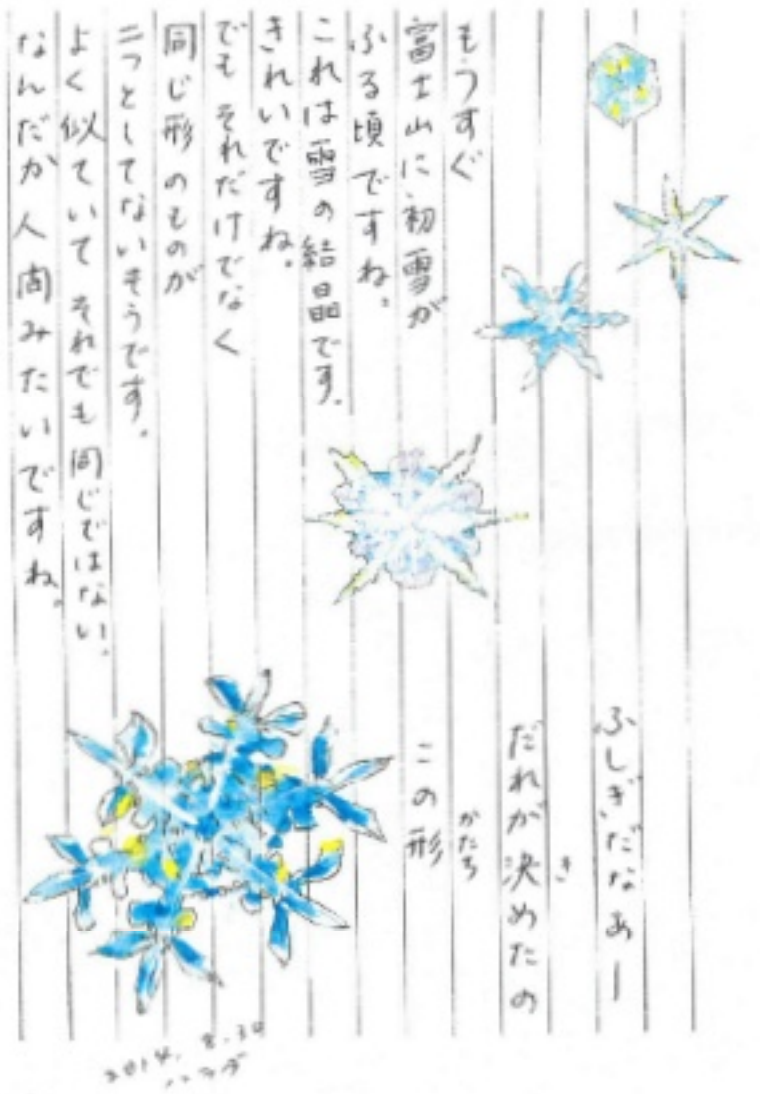 ふしぎだなあー
だれが決めたの
き
この形
かたち
もうすぐ
富士山に初雪が
ふる頃ですね。
これは雪の結晶です。
きれいですね。
でも それだけでなく
同じ形のものが
二つとしてないそうです。
よく似ていて それでも同じではない。
なんだか人間みたいですね。
2014. 8.30
ハラダ